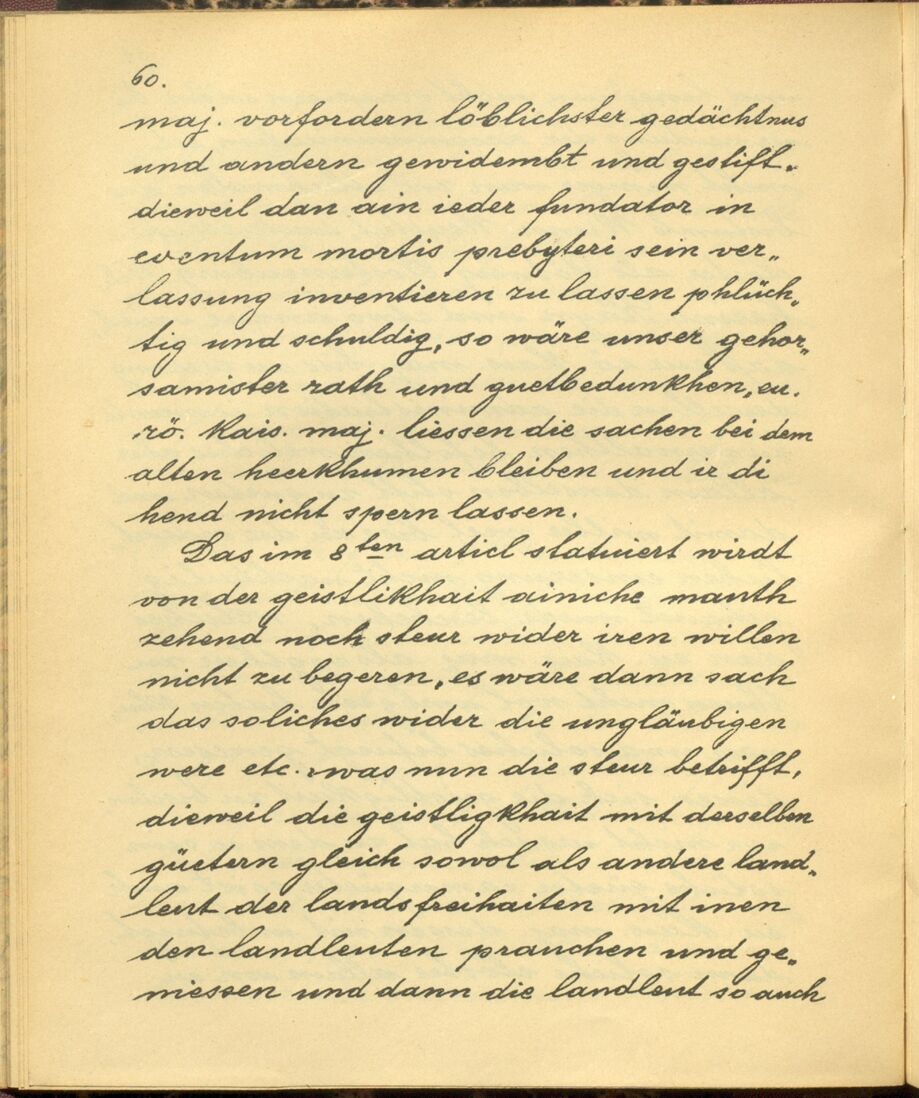 60.
maj. vorfordern löblichster gedächtnus
und andern gewidembt und gestift.
dieweil dan ain ieder fundator in
eventum mortis prebyteri sein ver„
lassung inventieren zu lassen phlüch„
tig und schuldig, so wäre unser gehor„
samister rath und guetbedunkhen, eu.
rö. Kais. maj. liessen die sachen bei dem
alten heerkhumen bleiben und ir di
hend nicht spern lassen.
Das im 8ten articl statuiert wirdt
von der geistlikhait ainiche mauth
zehend noch steur wider iren willen
nicht zu begeren, es wäre dann sach
das soliches wider die ungläubigen
were etc. was nun die steur betrifft,
dieweil die geistligkhait mit derselben
güetern gleich sowol als andere land„
leut der landsfreihaiten mit inen
den landleuten prauchen und ge„
niessen und dann die landleut so auch